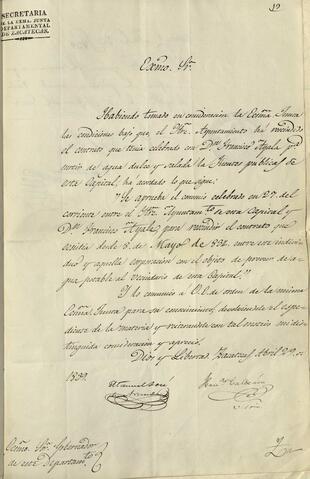 SECRETARIA
DE LA EXMA. JUNTA
DEPARTAMENTAL
DE ZACATECAS.
12
Exmo. Sr.
Habiendo tomado en consideracion la Exma. Junta
las condiciones bajo que el Ytre. Ayuntamiento ha rescindido
el contrato que tenia celebrado con Dn. Francisco Ayala pa.
surtir de agua dulce y salada la fuentes publicas de
esta Capital, ha acordado lo que sigue.
"Se aprueba el convenio celebrado en 27. del
corriente entre el Ytre. Ayuntamto. de esta Capital y
Dn. Francisco Ayala para rescindir el contrato que
existia desde 8. de Mayo de 838. entre este indivi-
duo y aquella corporacion con el objeto de proveer de a-
gua potable al vecindario de esta Capital."
Y lo comunico a V.E. de orden de la misma
Exma. Junta para su conocimiento, devolviendole el espe-
diente de la materia y reiterandole con tal motivo mi dis-
tinguida consideracion y aprecio.
Dios y Libertad. Zacatecas Abril 29. de
1839.
Manuel José
Exmo. Sr. Gobernador
de este Departamto.